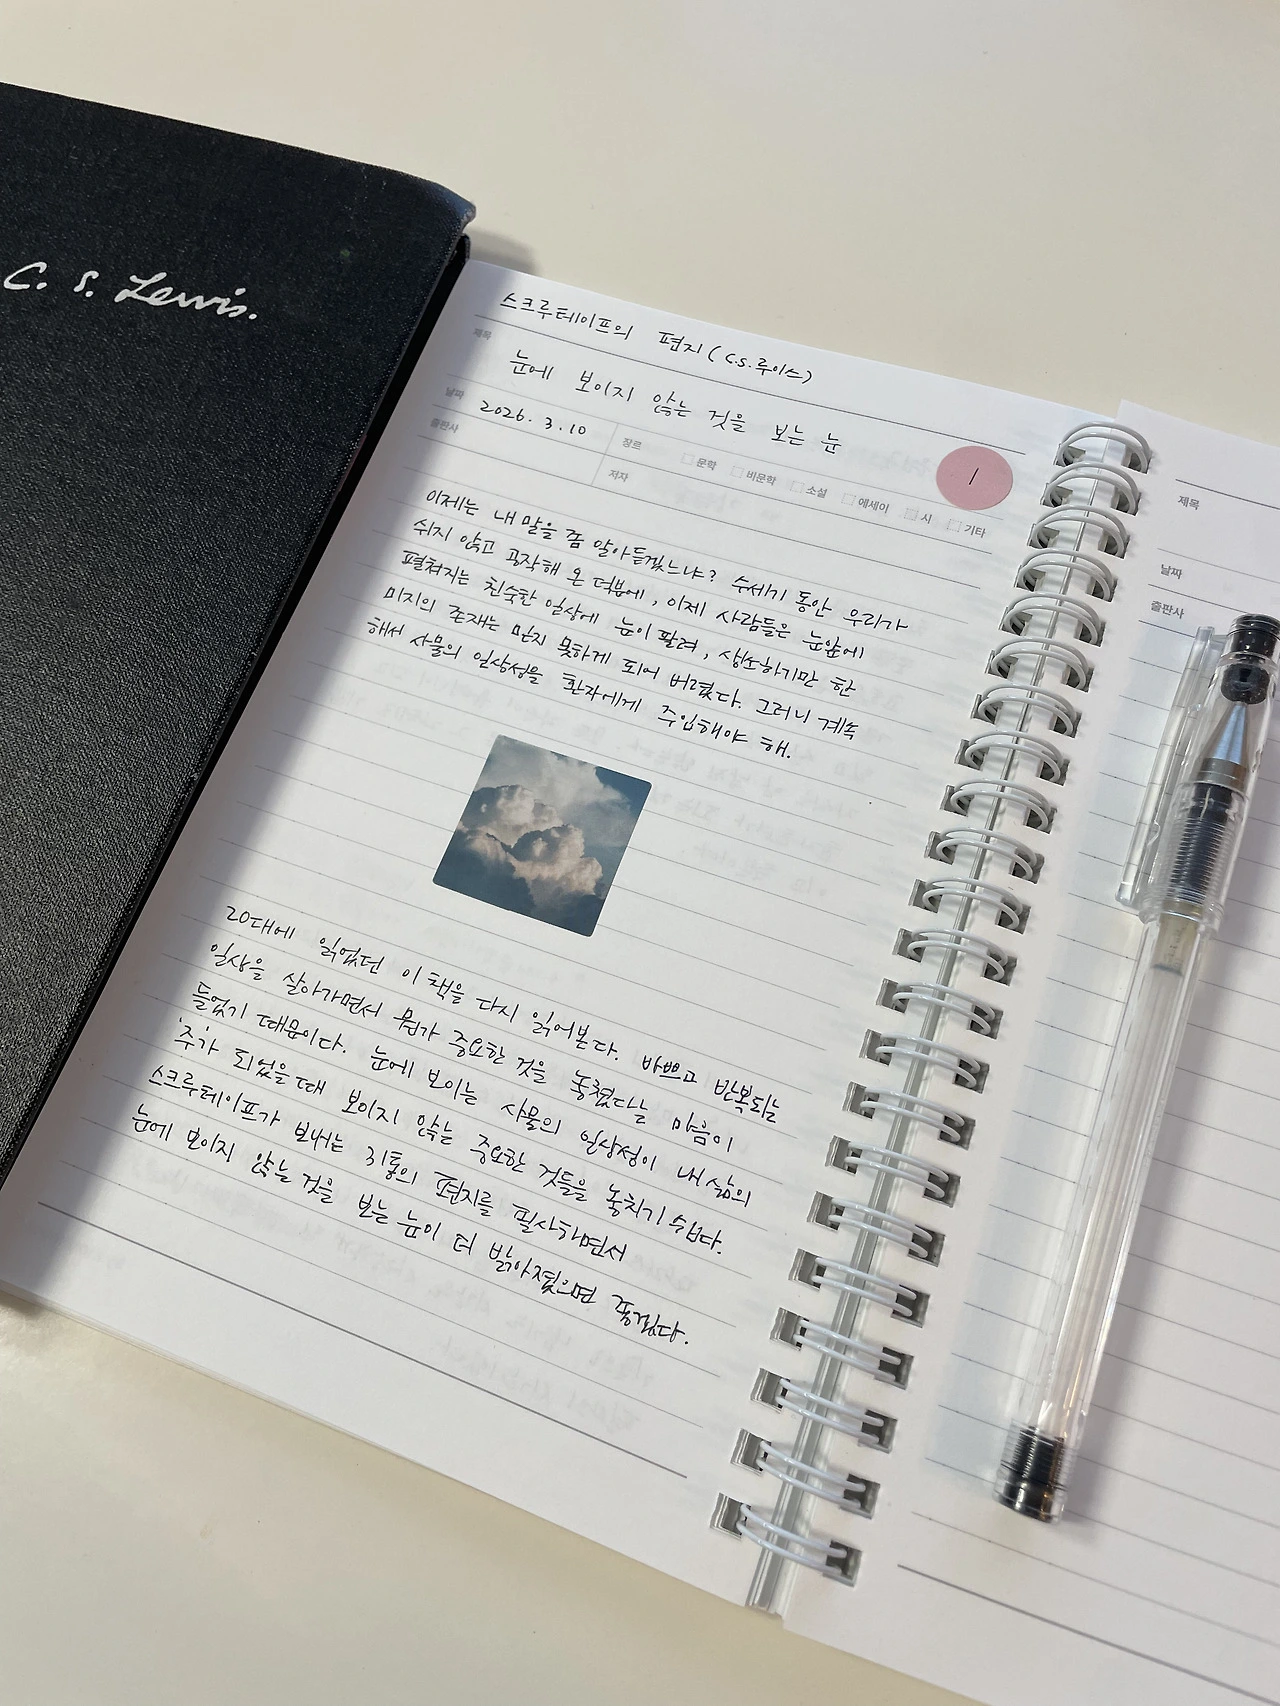 C. S. Lewis.
스크루테이프의 편지 (C.S.루이스)
제목
눈에 보이지 않는 것을 보는 눈
날짜 2026. 3. 10 장르 문학 비문학 소설 에세이 시 기타
1
출판사 저자
이제는 내 말을 좀 알아듣겠느냐? 수세기 동안 우리가
쉬지 않고 공작해 온 덕분에, 이제 사람들은 눈앞에
펼쳐지는 친숙한 일상에 눈이 팔려, 생소하기만 한
미지의 존재는 믿지 못하게 되어 버렸다. 그러니 계속
해서 사물의 일상성을 환자에게 주입해야 해.
20대에 읽었던 이 책을 다시 읽어본다. 바쁘고 반복되는
일상을 살아가면서 뭔가 중요한 것을 놓쳤다는 마음이
들었기 때문이다. 눈에 보이는 사물의 일상성이 내 삶의
'주'가 되었을 때 보이지 않는 중요한 것들을 놓치기 쉽다.
스크루테이프가 보내는 31통의 편지를 필사하면서
눈에 보이지 않는 것을 보는 눈이 더 밝아졌으면 좋겠다.
제목
날짜
출판사